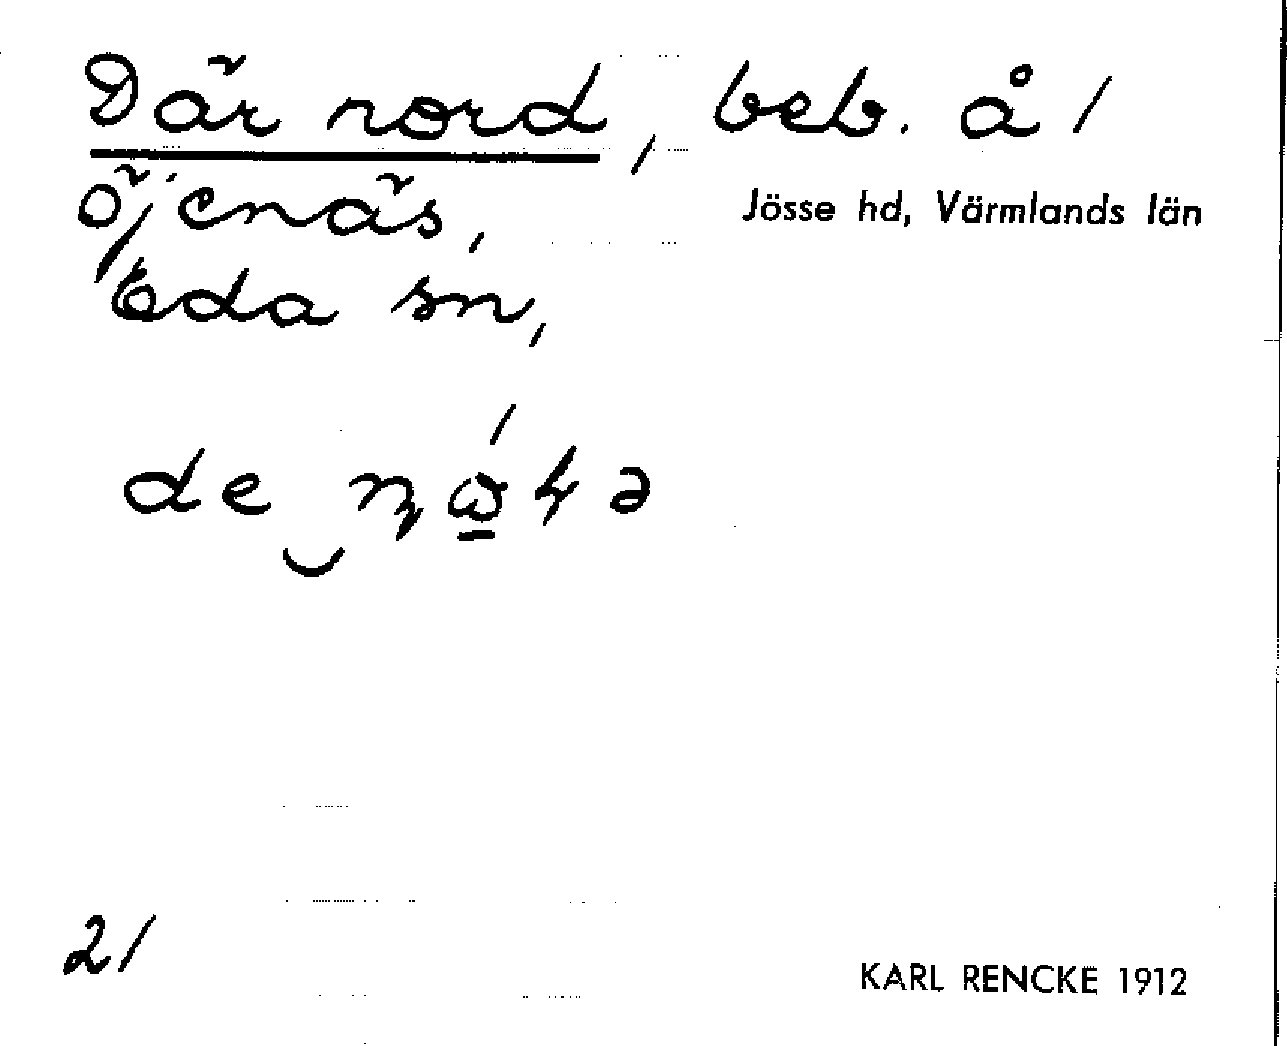 Där nord, beb. å 1
Öjenäs,
Jösse hd, Värmlands län
Eda sn,
21
KARL RENCKE 1912